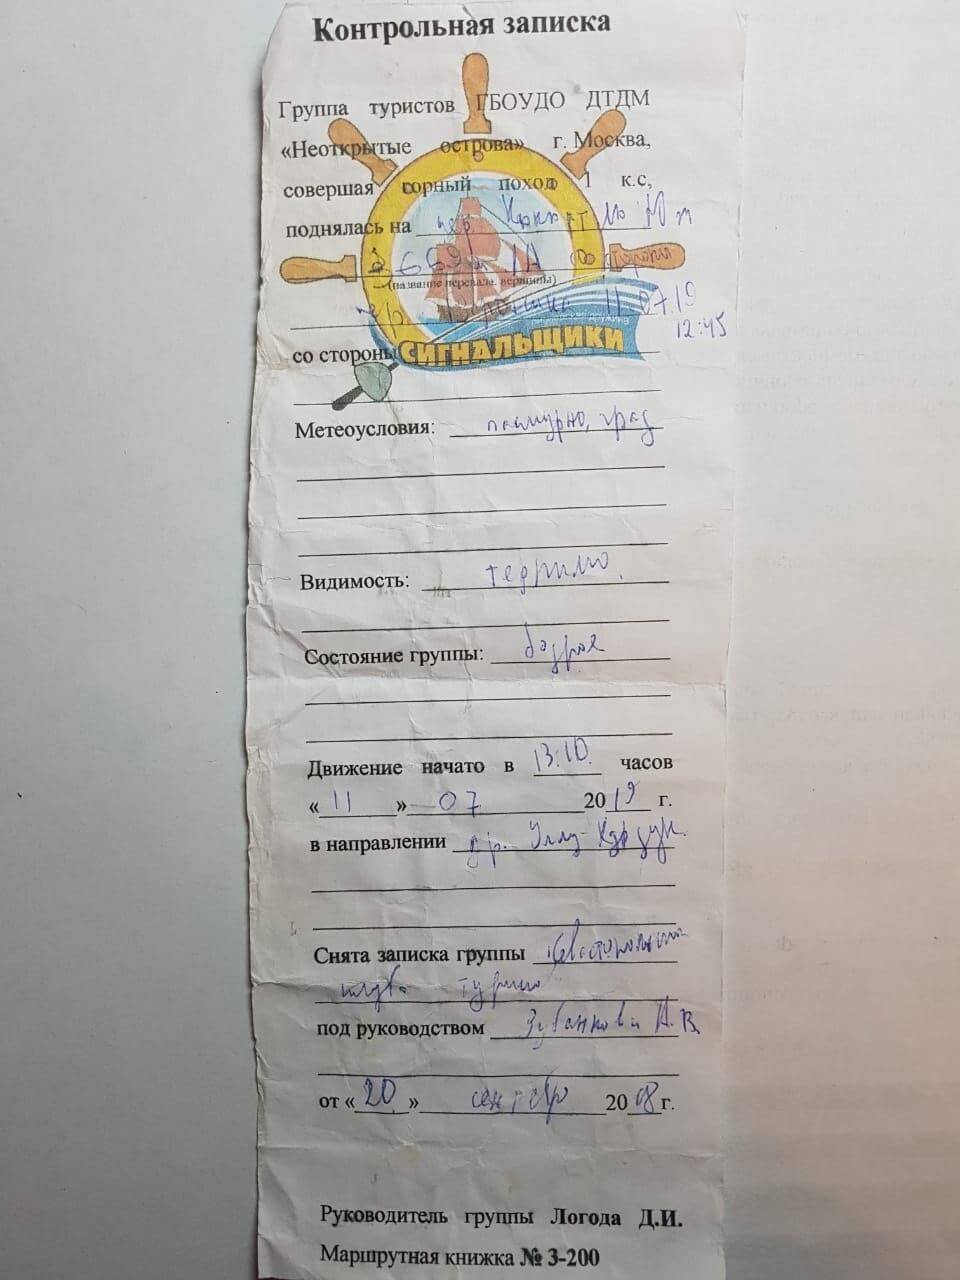 Контрольная записка
Группа туристов ГБОУДО ДТДМ
«Неоткрытые острова» г. Москва,
совершая горный поход 1 к.с,
поднялась на пер.
3669м 1А со стороны
(название перевала, вершины)
пер. 11.07.19
12:45
СИГНАЛЬЩИКИ
со стороны
Метеоусловия: пасмурно, град
Видимость:
Состояние группы: бодрое
Движение начато в 13:10 часов
«11» 07 2019 г.
в направлении
Снята записка группы
клуба
под руководством А.В
от «20» сентябр 2008г.
Руководитель группы Логода Д.И.
Маршрутная книжка № 3-200